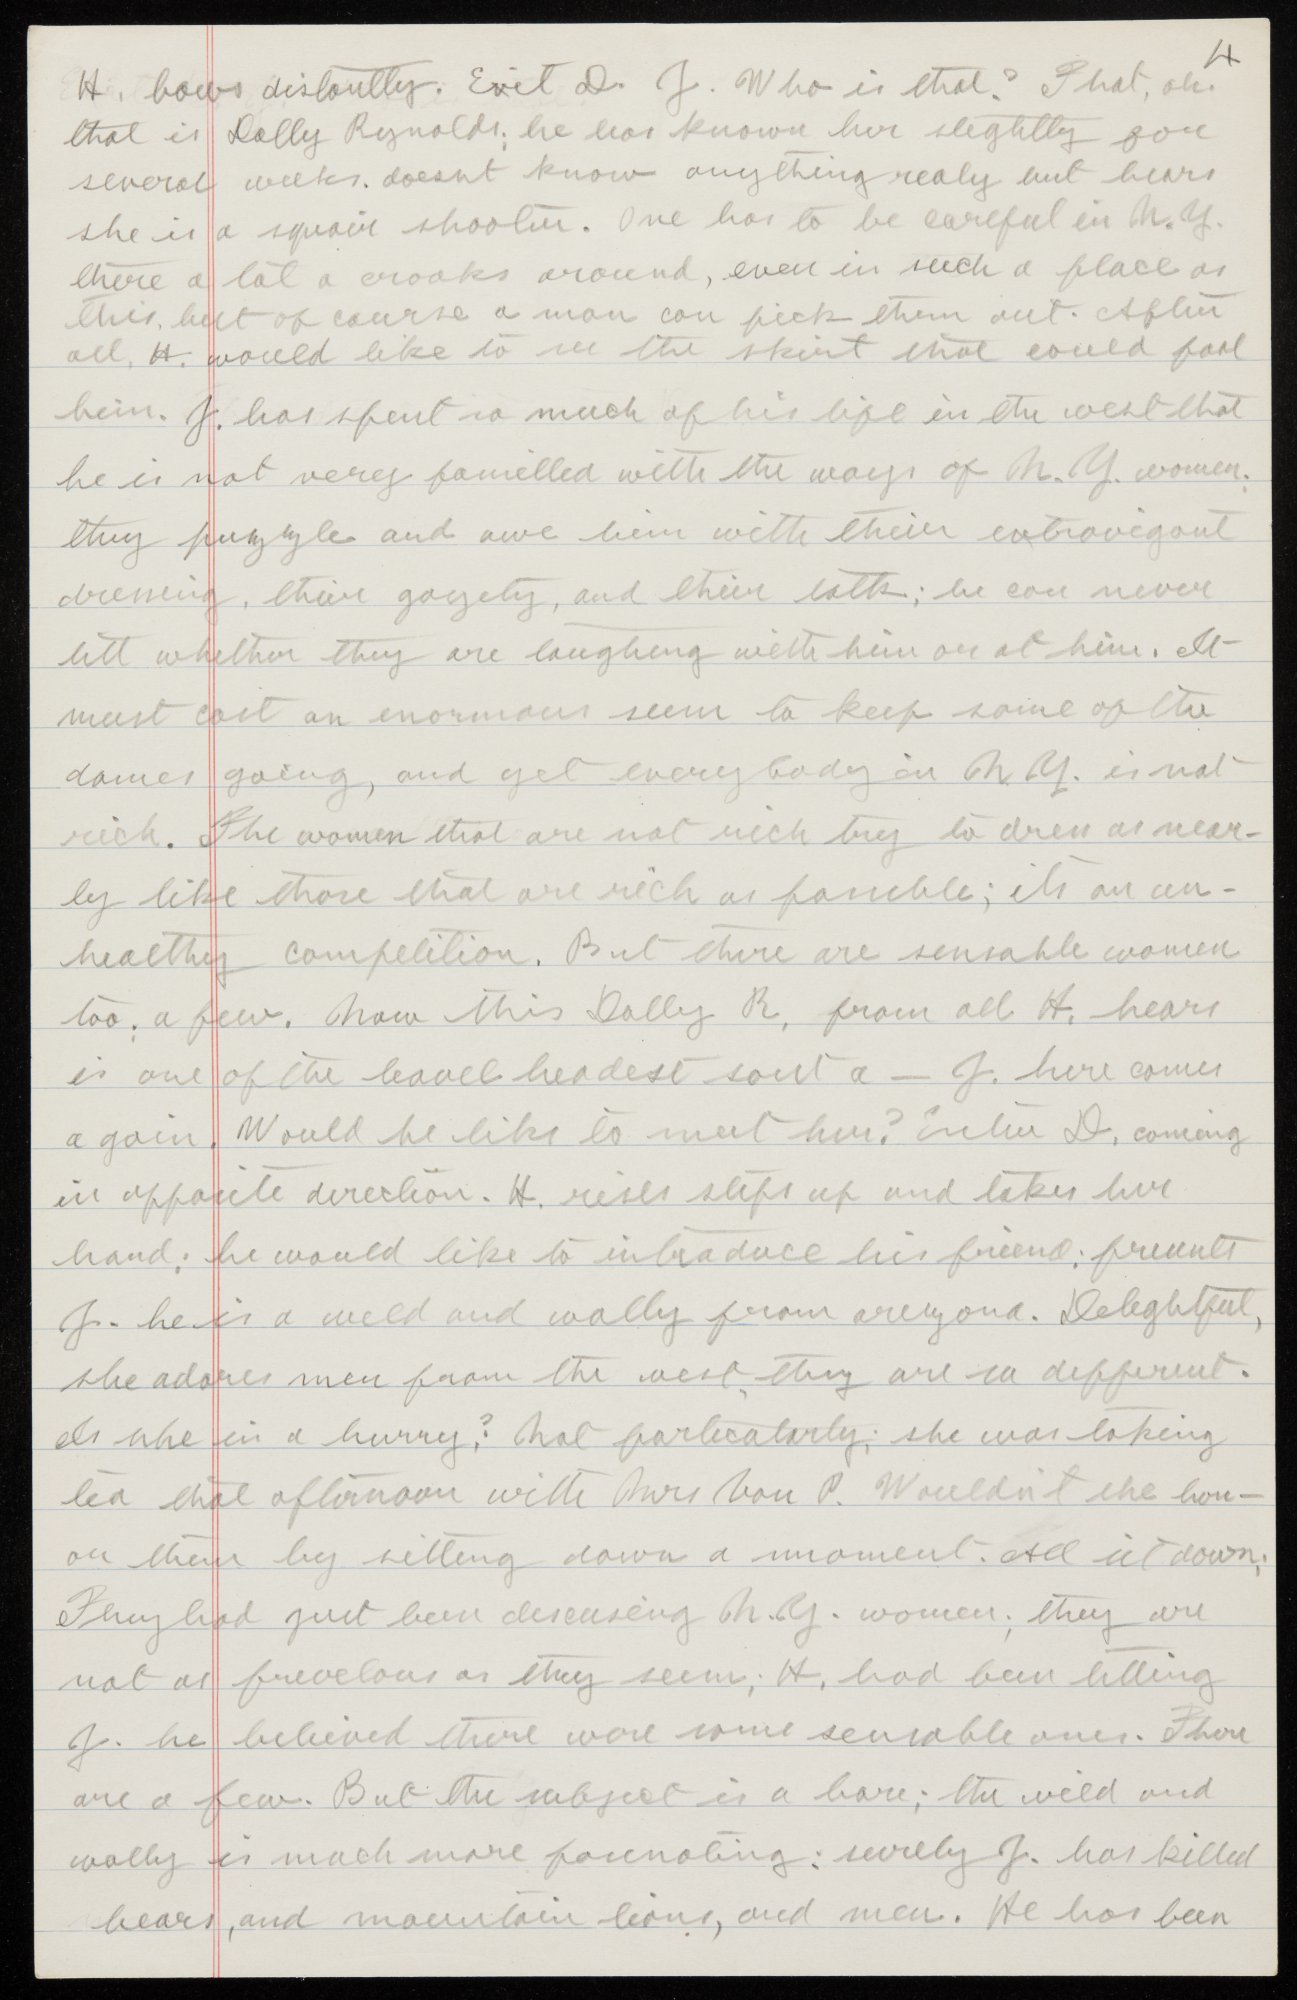 4
H. bows distantly. Exit D. J. Who is that? That, oh.
that is Dolly Reynolds; he has known her slightly for
several weeks. doesnt know anything realy but hears
she is a squair shooter. One has to be careful in N.Y.
there a lot a crooks around, even in such a place as
this, but of course a man can pick them out. After
all, H. would like to see the skirt that could fool
him. J. has spent so much of his life in the west that
he is not very familled with the ways of N.Y. women.
they puzzle and awe him with their extravigant
dressing, their gayety, and their talk; he can never
tell whether they are laughing with him or at him. It
must cost an enormous sum to keep some of the
dames going, and yet everybody in N.Y. is not
rich. The women that are not rich try to dress as near-
ly like those that are rich as possible; its an un-
healthy competition. But there are sensable women
too, a few. Now this Dolly R, from all H. hears
is one of the leavel headest sort a — J. here comes
again. Would he like to meet her? Enter D, coming
in opposite direction. H. rises steps up and takes her
hand; he would like to intraduce his friend; presents
J. he is a wild and wolly from arezona. Delightful,
she adores men from the west, they are so different.
Is she in a hurry? Not particularly; she was taking
tea that afternoon with Mrs Van P. Wouldn't she hon-
or them by sitting down a moment. All sit down;
They had just been discusing N.Y. women; they are
not as frivelous as they seem; H, had been telling
J. he believed there were some sensable ones. There
are a few. But the subject is a bore; the wild and
wolly is much more fascnating; surely J. has killed
bears, and mountain lions, and men. He has been